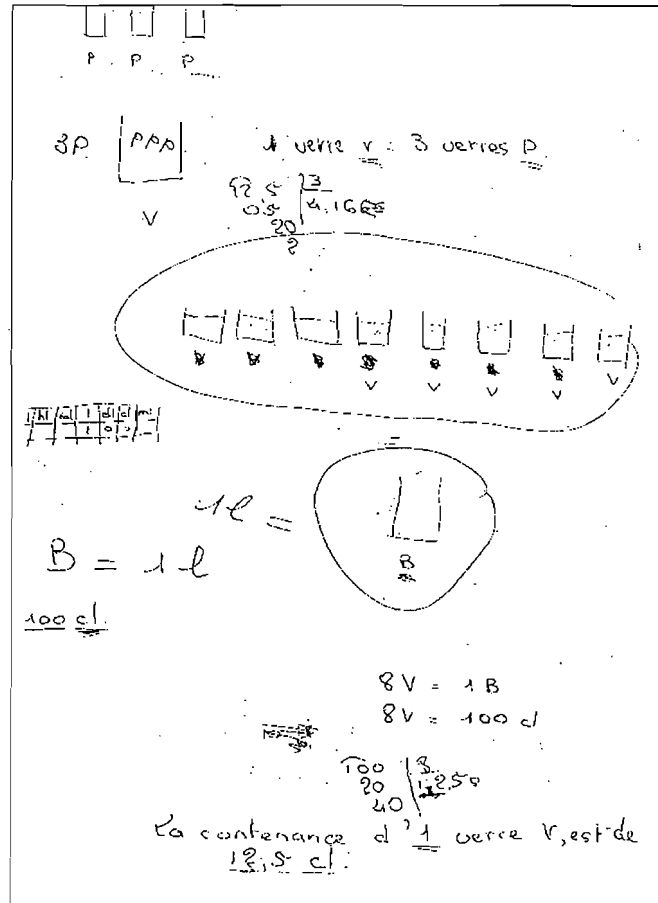 P P P
3P PPP 1 verre v = 3 verres P
V
12,5 | 3
05 | 4,166
20
2
V V V V V
hl dal l dl cl ml
1 0 0
=
1l =
B
B = 1 l
100 cl.
8V = 1B
8V = 100 cl
100 | 8
20 | 12,50
40
La contenance d'1 verre V, est de
12,5 cl.